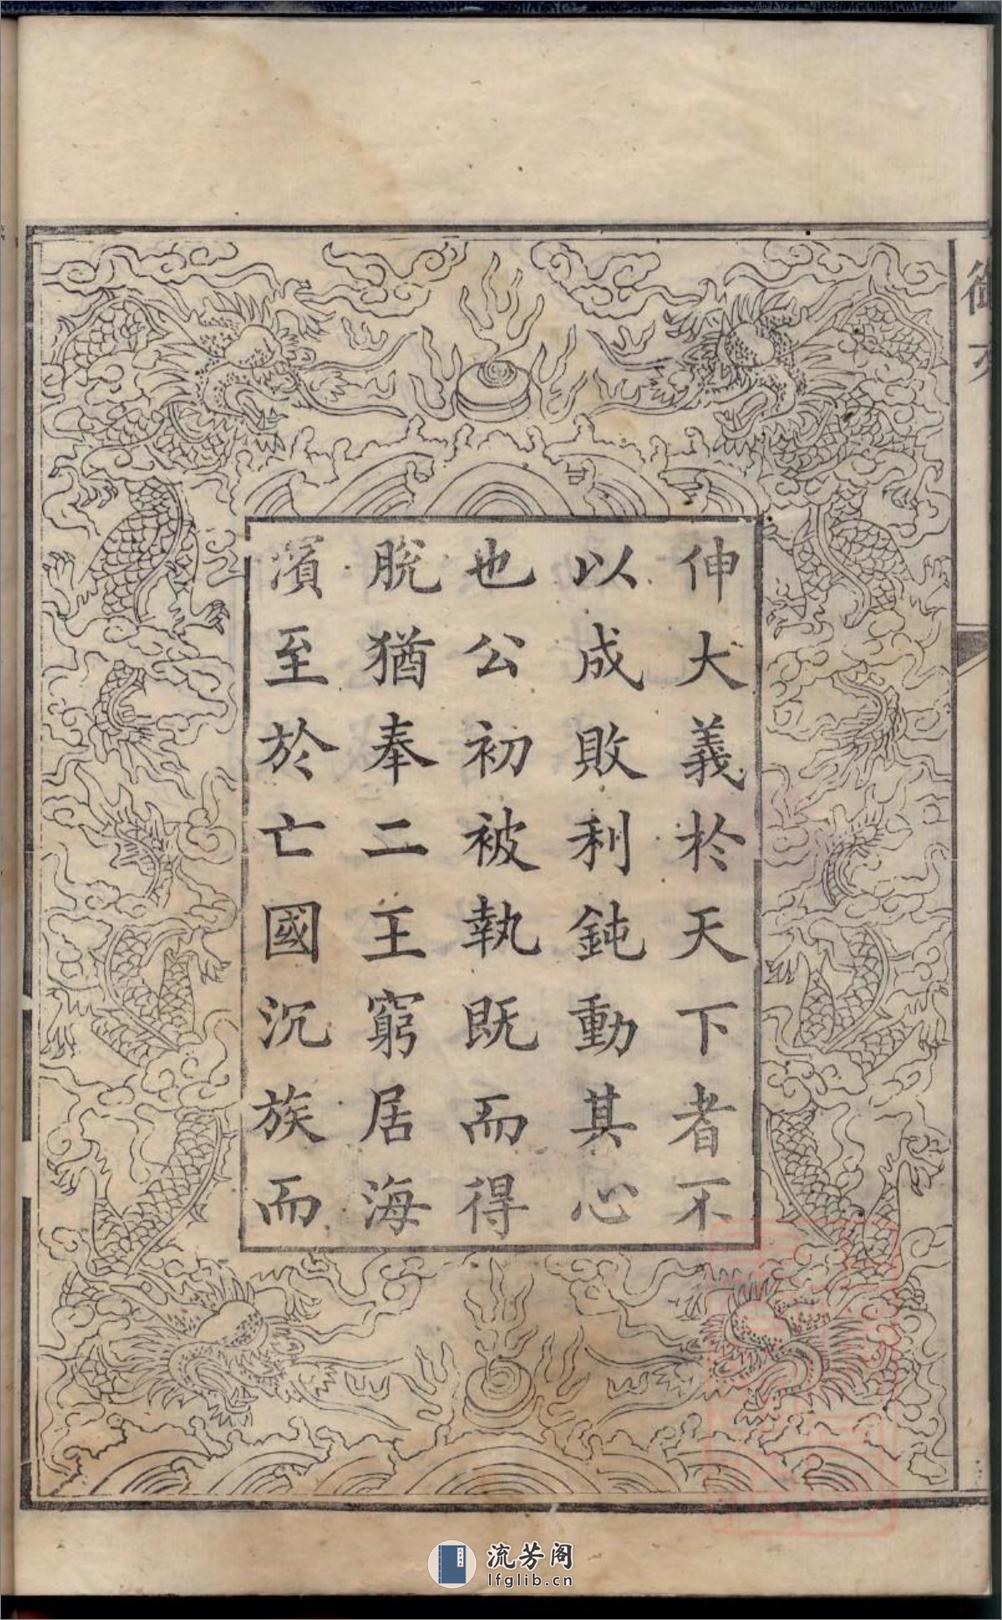 伸大義於天下者不
以成敗利鈍動其心
也公初被執既而得
脫猶奉二王窮居海
濱至於亡國沉族而
流芳阁
lfglib.cn